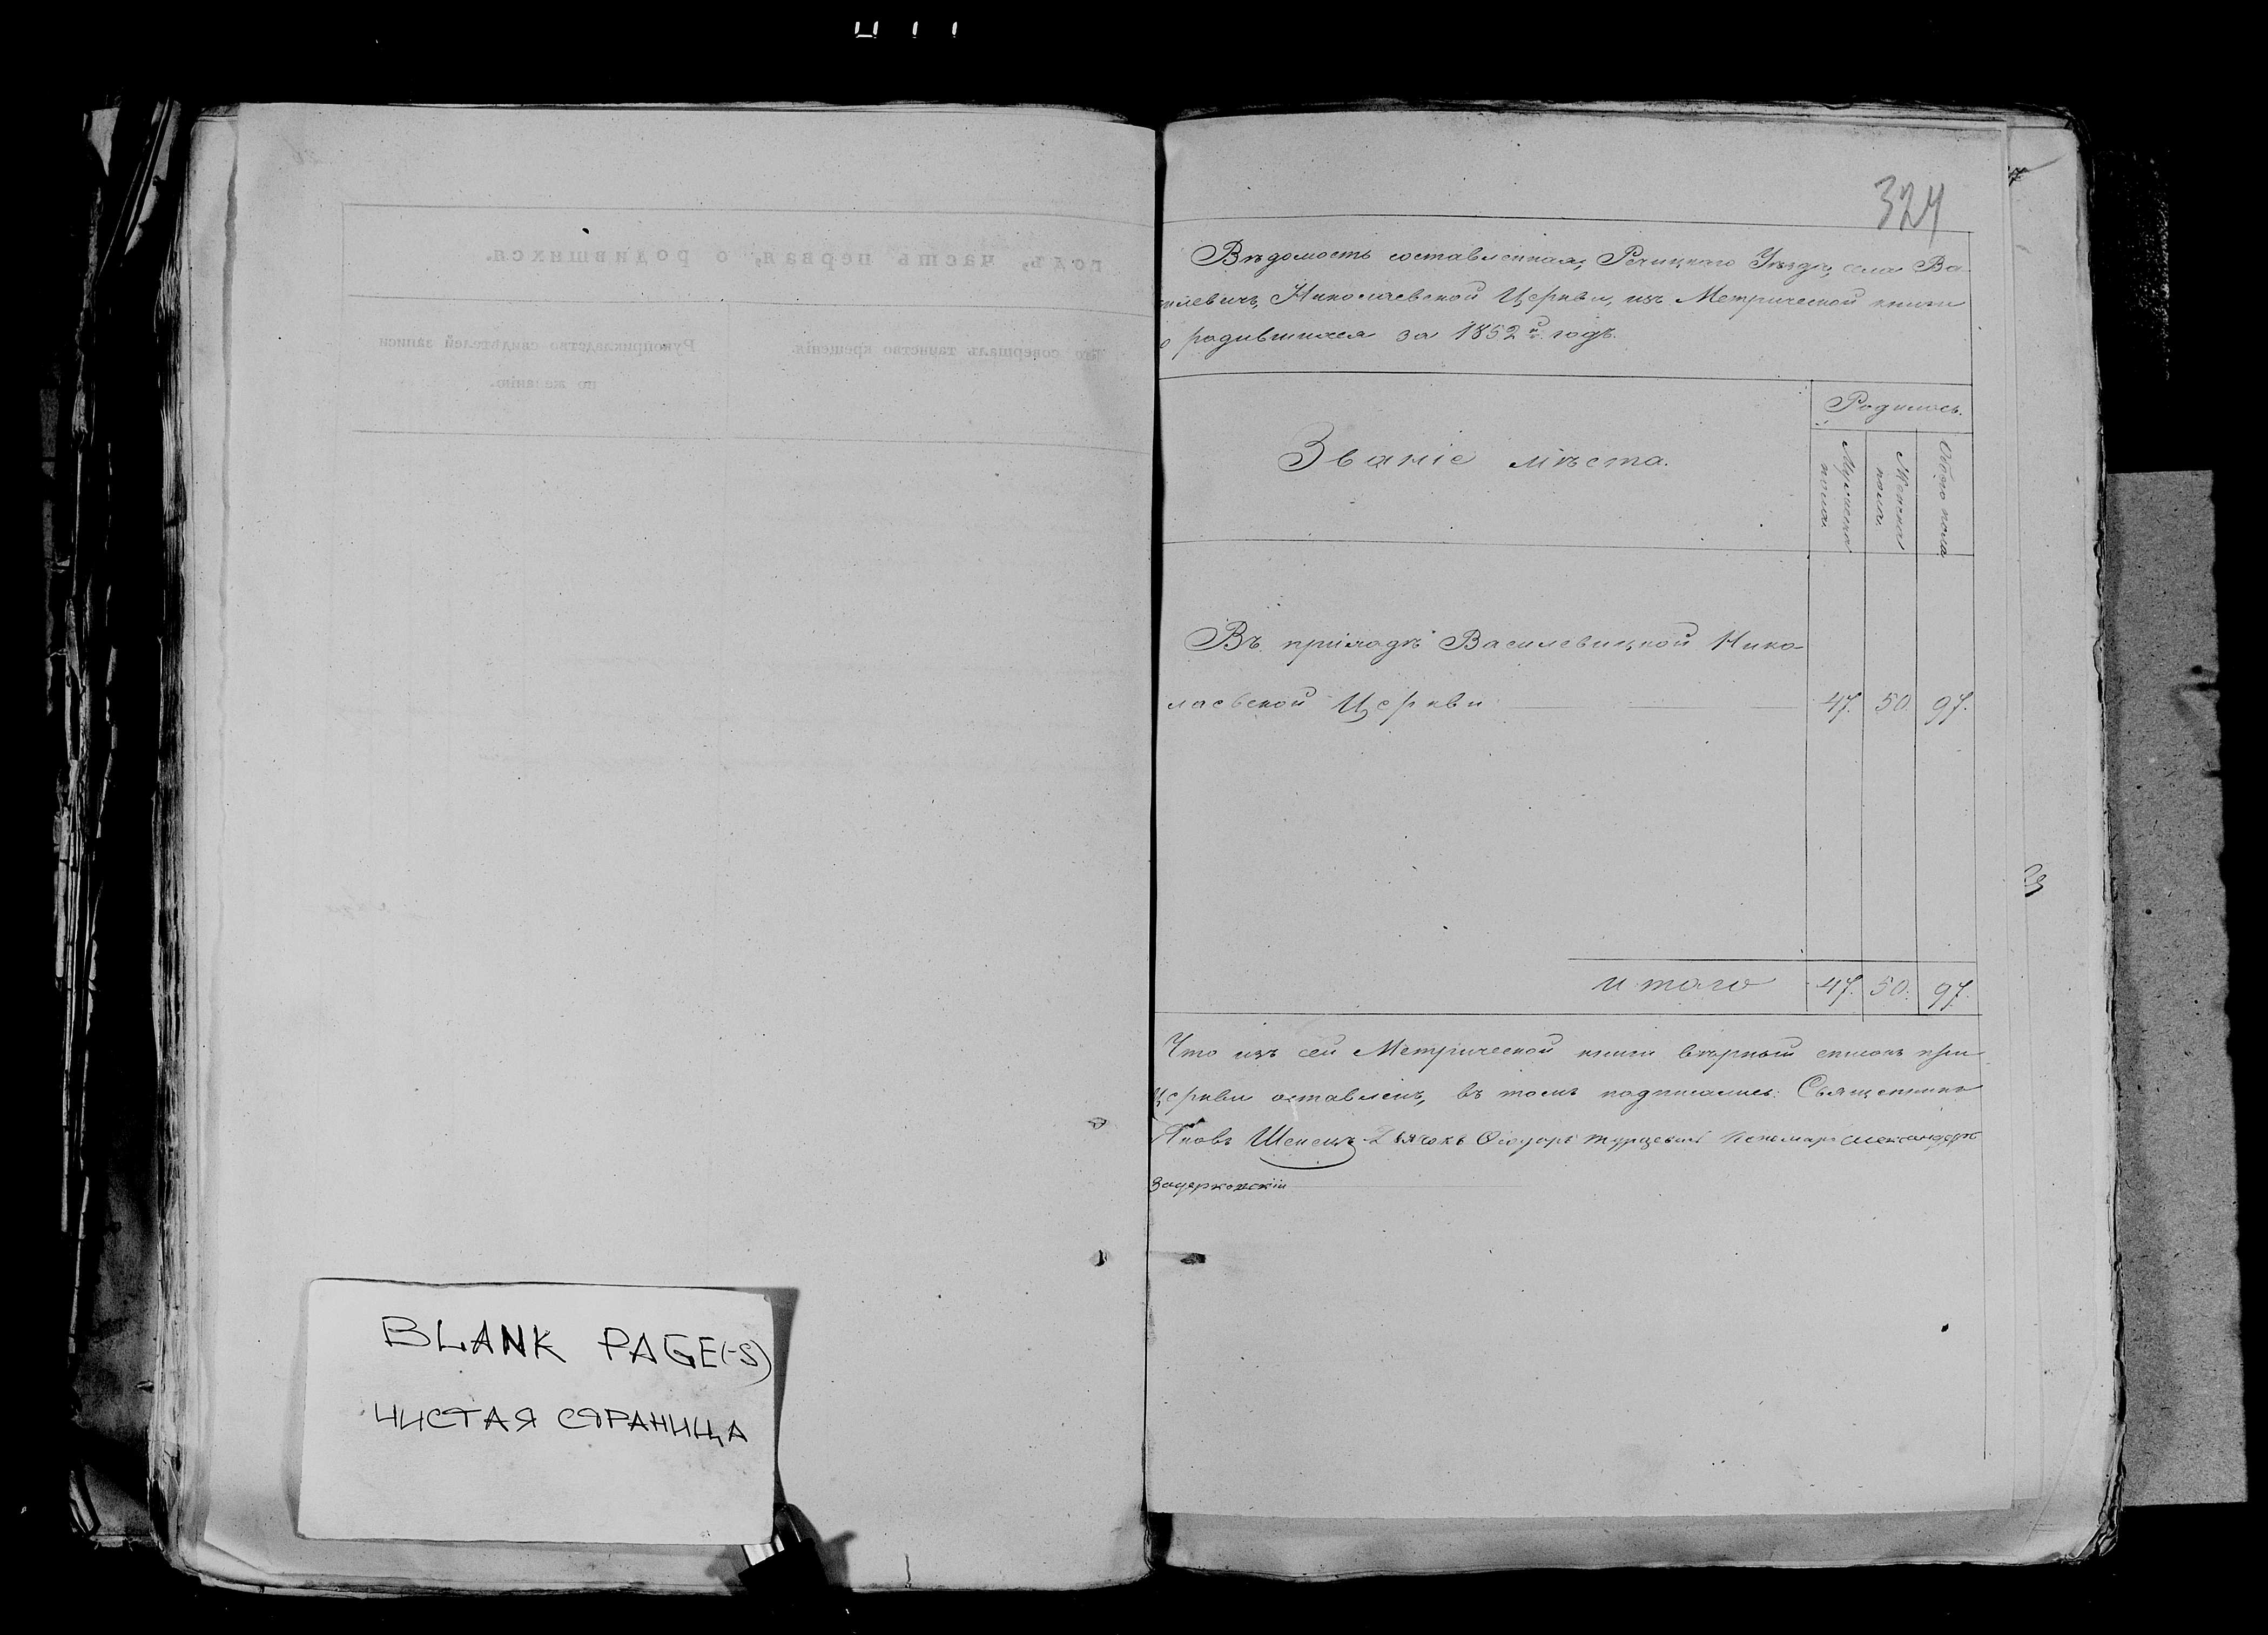 324
Вѣдомость составленная, Рѣчицкаго Уѣзда, села Ва-
силевичъ, Николаевской Церкви, изъ Метрической книги
о родившихся за 1852й годъ.
Званіе мѣста.
Родилось.
Мужеска пола.
Женска пола.
Обоего пола
Въ приходѣ Василевицкой Нико-
лаевской Церкви 47. 50. 97.
Итого 47. 50. 97.
Что изъ сей Метрической книги вѣрный списокъ при
Церкви оставленъ, въ томъ подписались: Священникъ
Яковъ Дьячокъ Ѳеодоръ Турцевичъ Пономарь Александръ
BLANK PAGE(-S)
ЧИСТАЯ СТРАНИЦА
годъ, часть первая, о родившихся.
Кто совершалъ таинство крещенія.
Рукоприкладство свидѣтелей записи
по желанію.